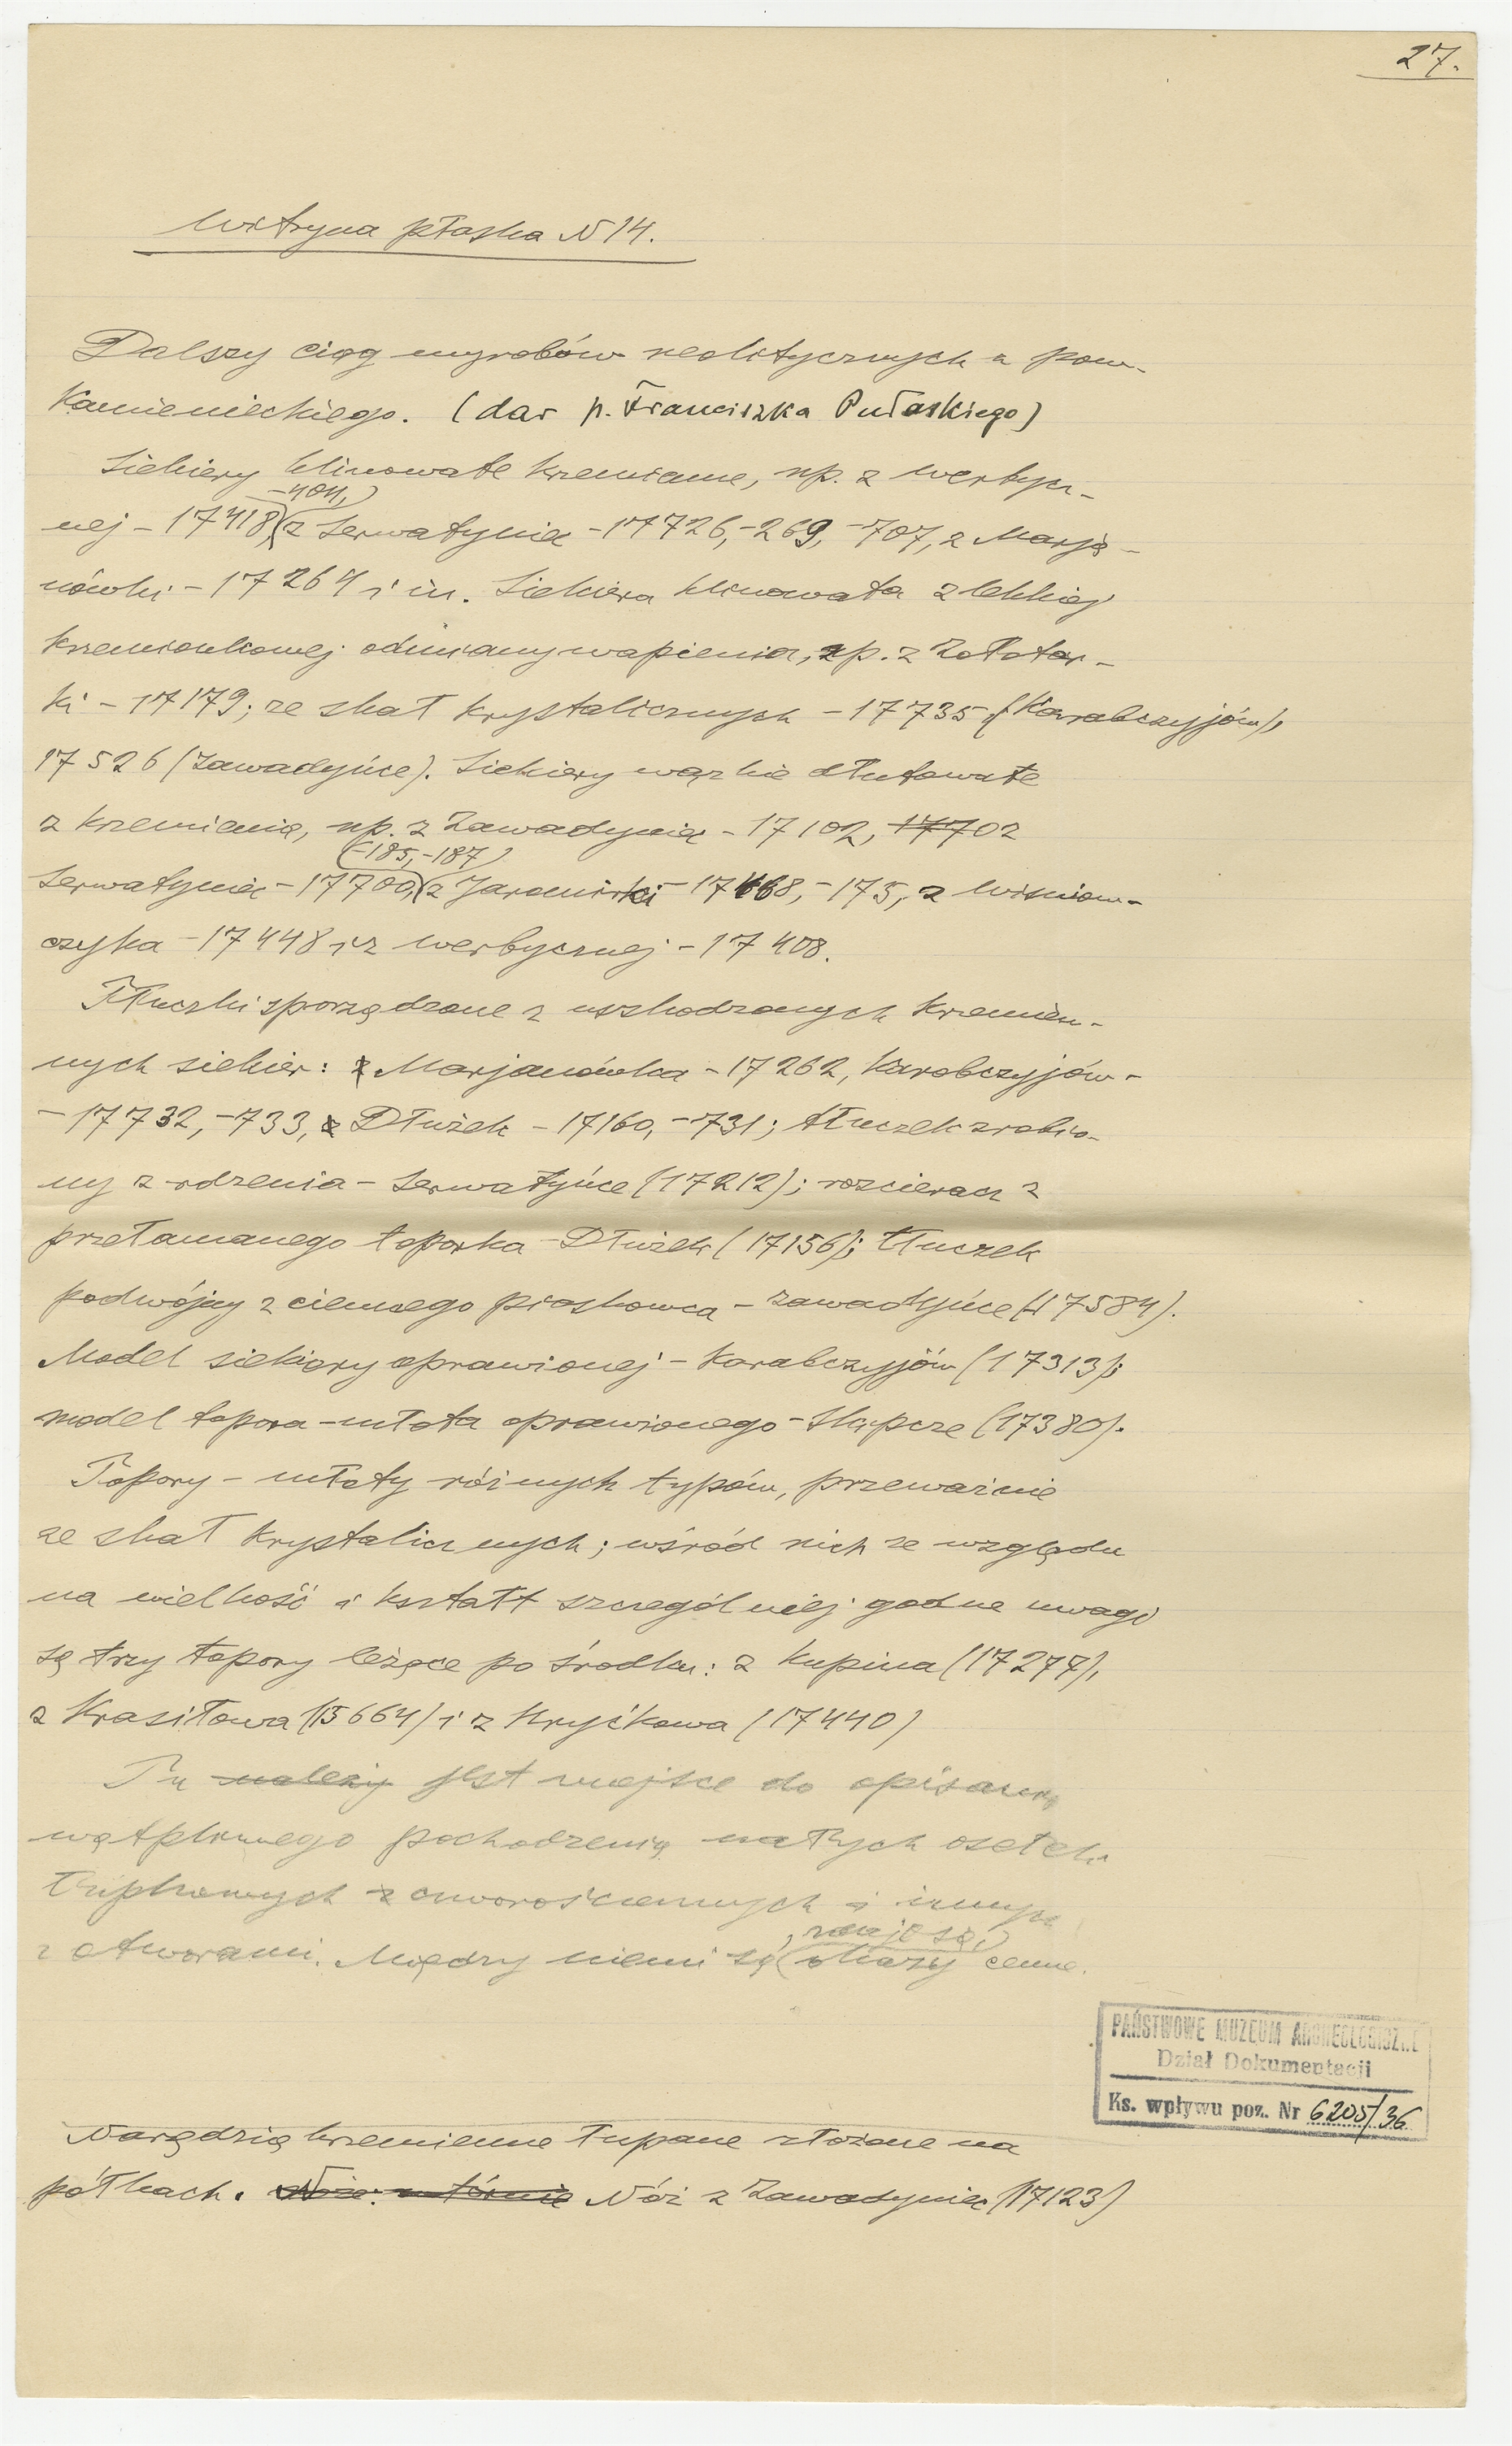 27.
Witryna płaska N 14.
Dalszy ciąg wyrobów neolitycznych z pow.
Kamienieckiego. (dar p. Franciszka Pułaskiego)
Siekiery klinowate krzemianne, np. z Werbycz-
-404,
nej - 17418, z Serwatyniec - 17726, -269, -707, z Marja-
nówki - 17264 i in. Siekiera klinowata z lekkiej
krzemionkowej odmiany wapienia, np. z Zołotar-
ki - 17179; ze skał krystalicznych - 17735 (Karabczyjów),
17526 (Zawadyńce). Siekiery wązkie dłutowate
z krzemienia, np. z Zawadyniec - 17102, 17702
(-185, -187)
Serwatyniec - 17700, z Jaromirki - 17168, -175, z Wiśniow-
czyka - 17448 i z Werbycznej - 17408.
Tłuczki sporządzone z uszkodzonych krzemien-
nych siekier: z Marjanówka - 17262, Karabczyjów -
- 17732, -733, z Dłużek - 17160, -731; tłuczek zrobio-
ny z rdzenia - Serwatyńce (17212); rozcieracz z
przełamanego toporka - Dłużek (17156); tłuczek
podwójny z ciemnego piaskowca - Zawadyńce (17584).
Model siekiery oprawionej - Karabczyjów (17313);
model topora-młota oprawionego - Słupcze (17380).
Topory - młoty różnych typów, przeważnie
ze skał krystalicznych; wśród nich ze względu
na wielkość i kształt szczególniej godne uwagi
są trzy topory leżące po środku: z Kupina (17277),
z Krasiłowa (15664) i z Kryćkowa (17440)
Tu należy jest miejsce do opisania
wątpliwego pochodzenia małych osełek
łupkowych z czworościennych i innych
, zdaje się,
z otworami. Między niemi są okazy cenne.
PAŃSTWOWE MUZEUM ARCHEOLOGICZNE
Dział Dokumentacji
Ks. wpływu poz. Nr 6205/36
Narzędzia krzemienne łupane złożone na
półkach. Nóż z Zawadyniec (17123)